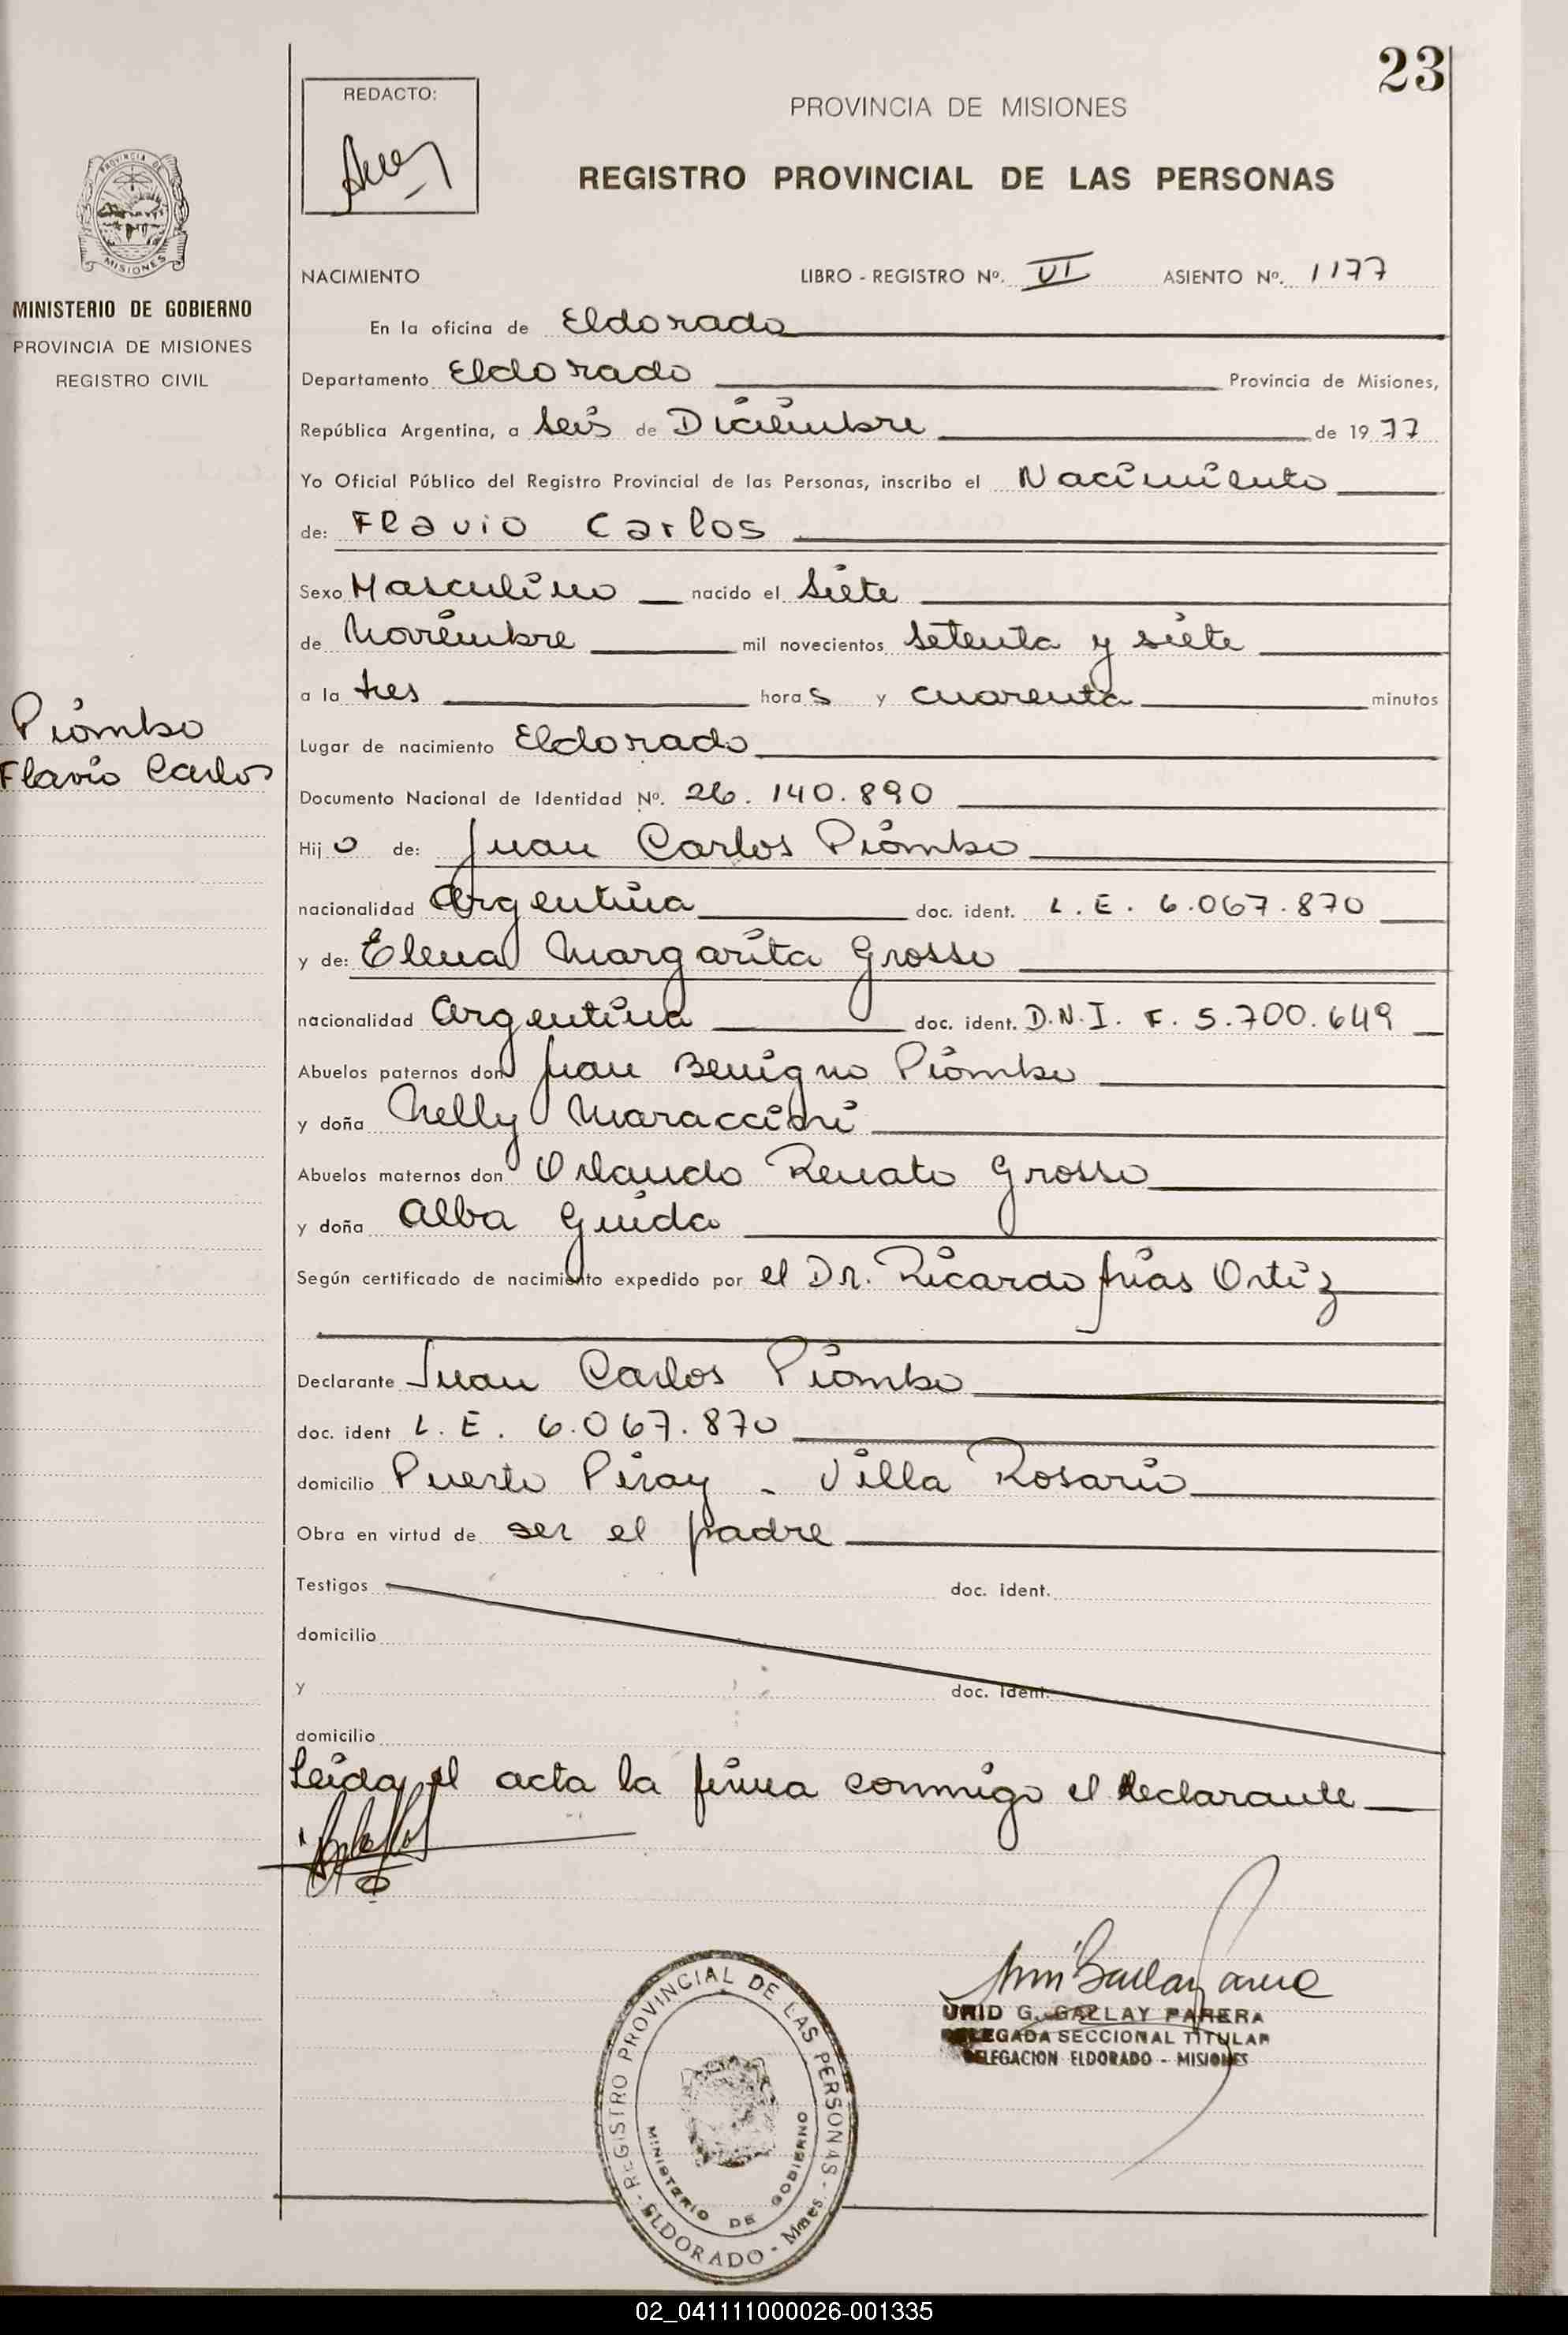 23
REDACTO:
PROVINCIA DE MISIONES
REGISTRO PROVINCIAL DE LAS PERSONAS
PROVINCIA DE
MISIONES
MINISTERIO DE GOBIERNO
PROVINCIA DE MISIONES
REGISTRO CIVIL
NACIMIENTO LIBRO - REGISTRO Nº. VI ASIENTO Nº. 1177
En la oficina de Eldorado
Departamento Eldorado Provincia de Misiones,
República Argentina, a seis de Diciembre de 1977
Yo Oficial Público del Registro Provincial de las Personas, inscribo el Nacimiento
de: Flavio Carlos
Sexo Masculino nacido el siete
de Noviembre mil novecientos setenta y siete
a la tres horas y cuarenta minutos
Piombo
Flavio Carlos
Lugar de nacimiento Eldorado
Documento Nacional de Identidad Nº. 26.140.890
Hijo de: Juan Carlos Piombo
nacionalidad Argentina doc. ident. L.E. 6.067.870
y de: Elena Margarita Grosso
nacionalidad Argentina doc. ident. D.N.I. F. 5.700.649
Abuelos paternos don Juan Benigno Piombo
y doña Nelly Maraccini
Abuelos maternos don Orlando Renato Grosso
y doña Alba Guida
Según certificado de nacimiento expedido por el Dr. Ricardo Frias Ortiz
Declarante Juan Carlos Piombo
doc. ident L.E. 6.067.870
domicilio Puerto Piray - Villa Rosario
Obra en virtud de ser el padre
Testigos doc. ident.
domicilio
y doc. ident.
domicilio
Leida el acta la firma conmigo el declarante
URID G. GALLAY PARERA
DELEGADA SECCIONAL TITULAR
DELEGACION ELDORADO - MISIONES
REGISTRO PROVINCIAL DE LAS PERSONAS - ELDORADO - Mnes.
MINISTERIO DE GOBIERNO
02_041111000026-001335